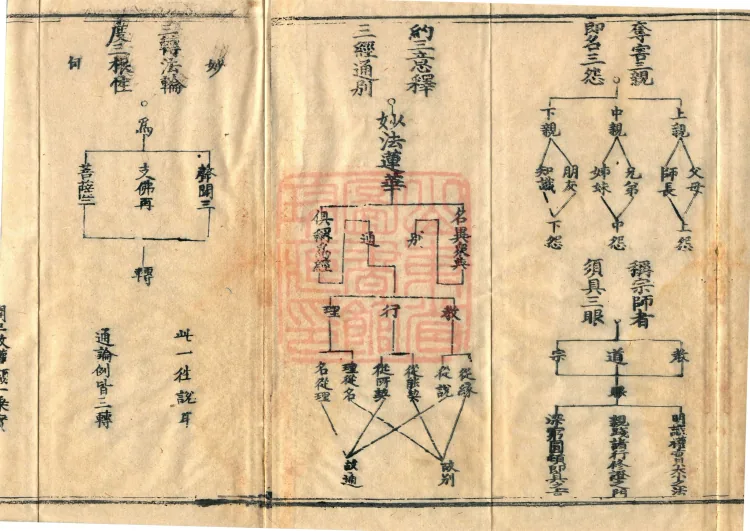 奪害三親
即名三怨
上親
中親
下親
父母
師長
兄弟
姊妹
朋友
知識
上怨
中怨
下怨
稱宗師者
須具三眼
教
道
宗
眼
明識權實大小之法
親踐諸行修證之門
深窮圓頓即具之
約三 釋
三經通別
妙法蓮華
名異衆典
俱稱爲經
別
通
教
行
理
從緣
從說
從能契
從所契
理從名
名從理
故別
故通
妙
三轉法輪
度三根性
爲
聲聞三
支佛再
菩薩一
轉
此一往說耳
通論例皆三轉